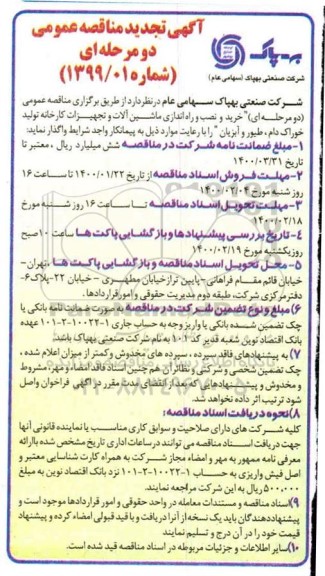 آگهی تجدید مناقصه عمومی
دو مرحله ای
(شماره ۱۳۹۹/۰۱)
بهپاک
شرکت صنعتی بهپاک (سهامی عام)
شرکت صنعتی بهپاک سهامی عام در نظر دارد از طریق برگزاری مناقصه عمومی
(دو مرحله ای) "خرید و نصب و راه اندازی ماشین آلات و تجهیزات کارخانه تولید
خوراک دام، طیور و آبزیان" را با رعایت موارد ذیل به پیمانکار واجد شرایط واگذار نماید:
۱- مبلغ ضمانت نامه شرکت در مناقصه شش میلیارد ریال، معتبر تا
تاریخ ۱۴۰۰/۰۳/۳۱
۲- مهلت فروش اسناد مناقصه از تاریخ ۱۴۰۰/۰۱/۲۲ تا ساعت ۱۶
روز شنبه مورخ ۱۴۰۰/۰۲/۰۴
۳- مهلت تحویل اسناد مناقصه تا ساعت ۱۶ روز شنبه مورخ
۱۴۰۰/۰۲/۱۸
۴- تاریخ بررسی پیشنهادها و بازگشایی پاکت ها ساعت ۱۰ صبح
روز یکشنبه مورخ ۱۴۰۰/۰۲/۱۹
۵- محل تحویل اسناد مناقصه و بازگشایی پاکت ها، تهران-
خیابان قائم مقام فراهانی-پایین تر از خیابان مطهری - خیابان ۲۲-پلاک ۶-
دفتر مرکزی شرکت، طبقه دوم مدیریت حقوقی و امور قراردادها.
۶) مبلغ و نوع تضمین شرکت در مناقصه به صورت ضمانت نامه بانکی یا
چک تضمین شده بانکی یا واریز وجه به حساب جاری ۱-۱۰۰۲۲-۲-۱۰۱ عهده
بانک اقتصاد نوین شعبه غدیر کد ۱۰۱ به نام شرکت صنعتی بهپاک باشد.
۷) به پیشنهادهای فاقد سپرده، سپرده های مخدوش و کمتر از میزان اعلام شده،
چک تضمین شخصی و شرکتی و نظائر آن همچنین اسناد فاقد امضاء و مهر، مشروط
و مخدوش و پیشنهادهایی که بعد از انقضای مدت مقرر در آگهی فراخوان واصل
شود ترتیب اثر داده نخواهد شد.
۸) نحوه دریافت اسناد مناقصه:
کلیه شرکت های دارای صلاحیت و سوابق کاری مناسب یا نماینده قانونی آنها
جهت دریافت اسناد مناقصه می توانند در ساعات اداری تاریخ مشخص شده با ارائه
معرفی نامه ممهور به مهر و امضاء مجاز شرکت به همراه کارت شناسایی معتبر و
اصل فیش واریزی به حساب ۱-۱۰۰۲۲-۲-۱۰۱ نزد بانک اقتصاد نوین به مبلغ
۵۰۰,۰۰۰ ریال به این شرکت مراجعه نمایند.
۹) اسناد مناقصه و مستندات معامله در واحد حقوقی و امور قراردادها موجود است و
پیشنهاددهندگان باید یک نسخه از آن را دریافت و با قید قبولی امضاء کرده و پیشنهاد
قیمت خود را در آن درج و تسلیم نمایند
۱۰) سایر اطلاعات و جزئیات مربوطه در اسناد مناقصه قید شده است.